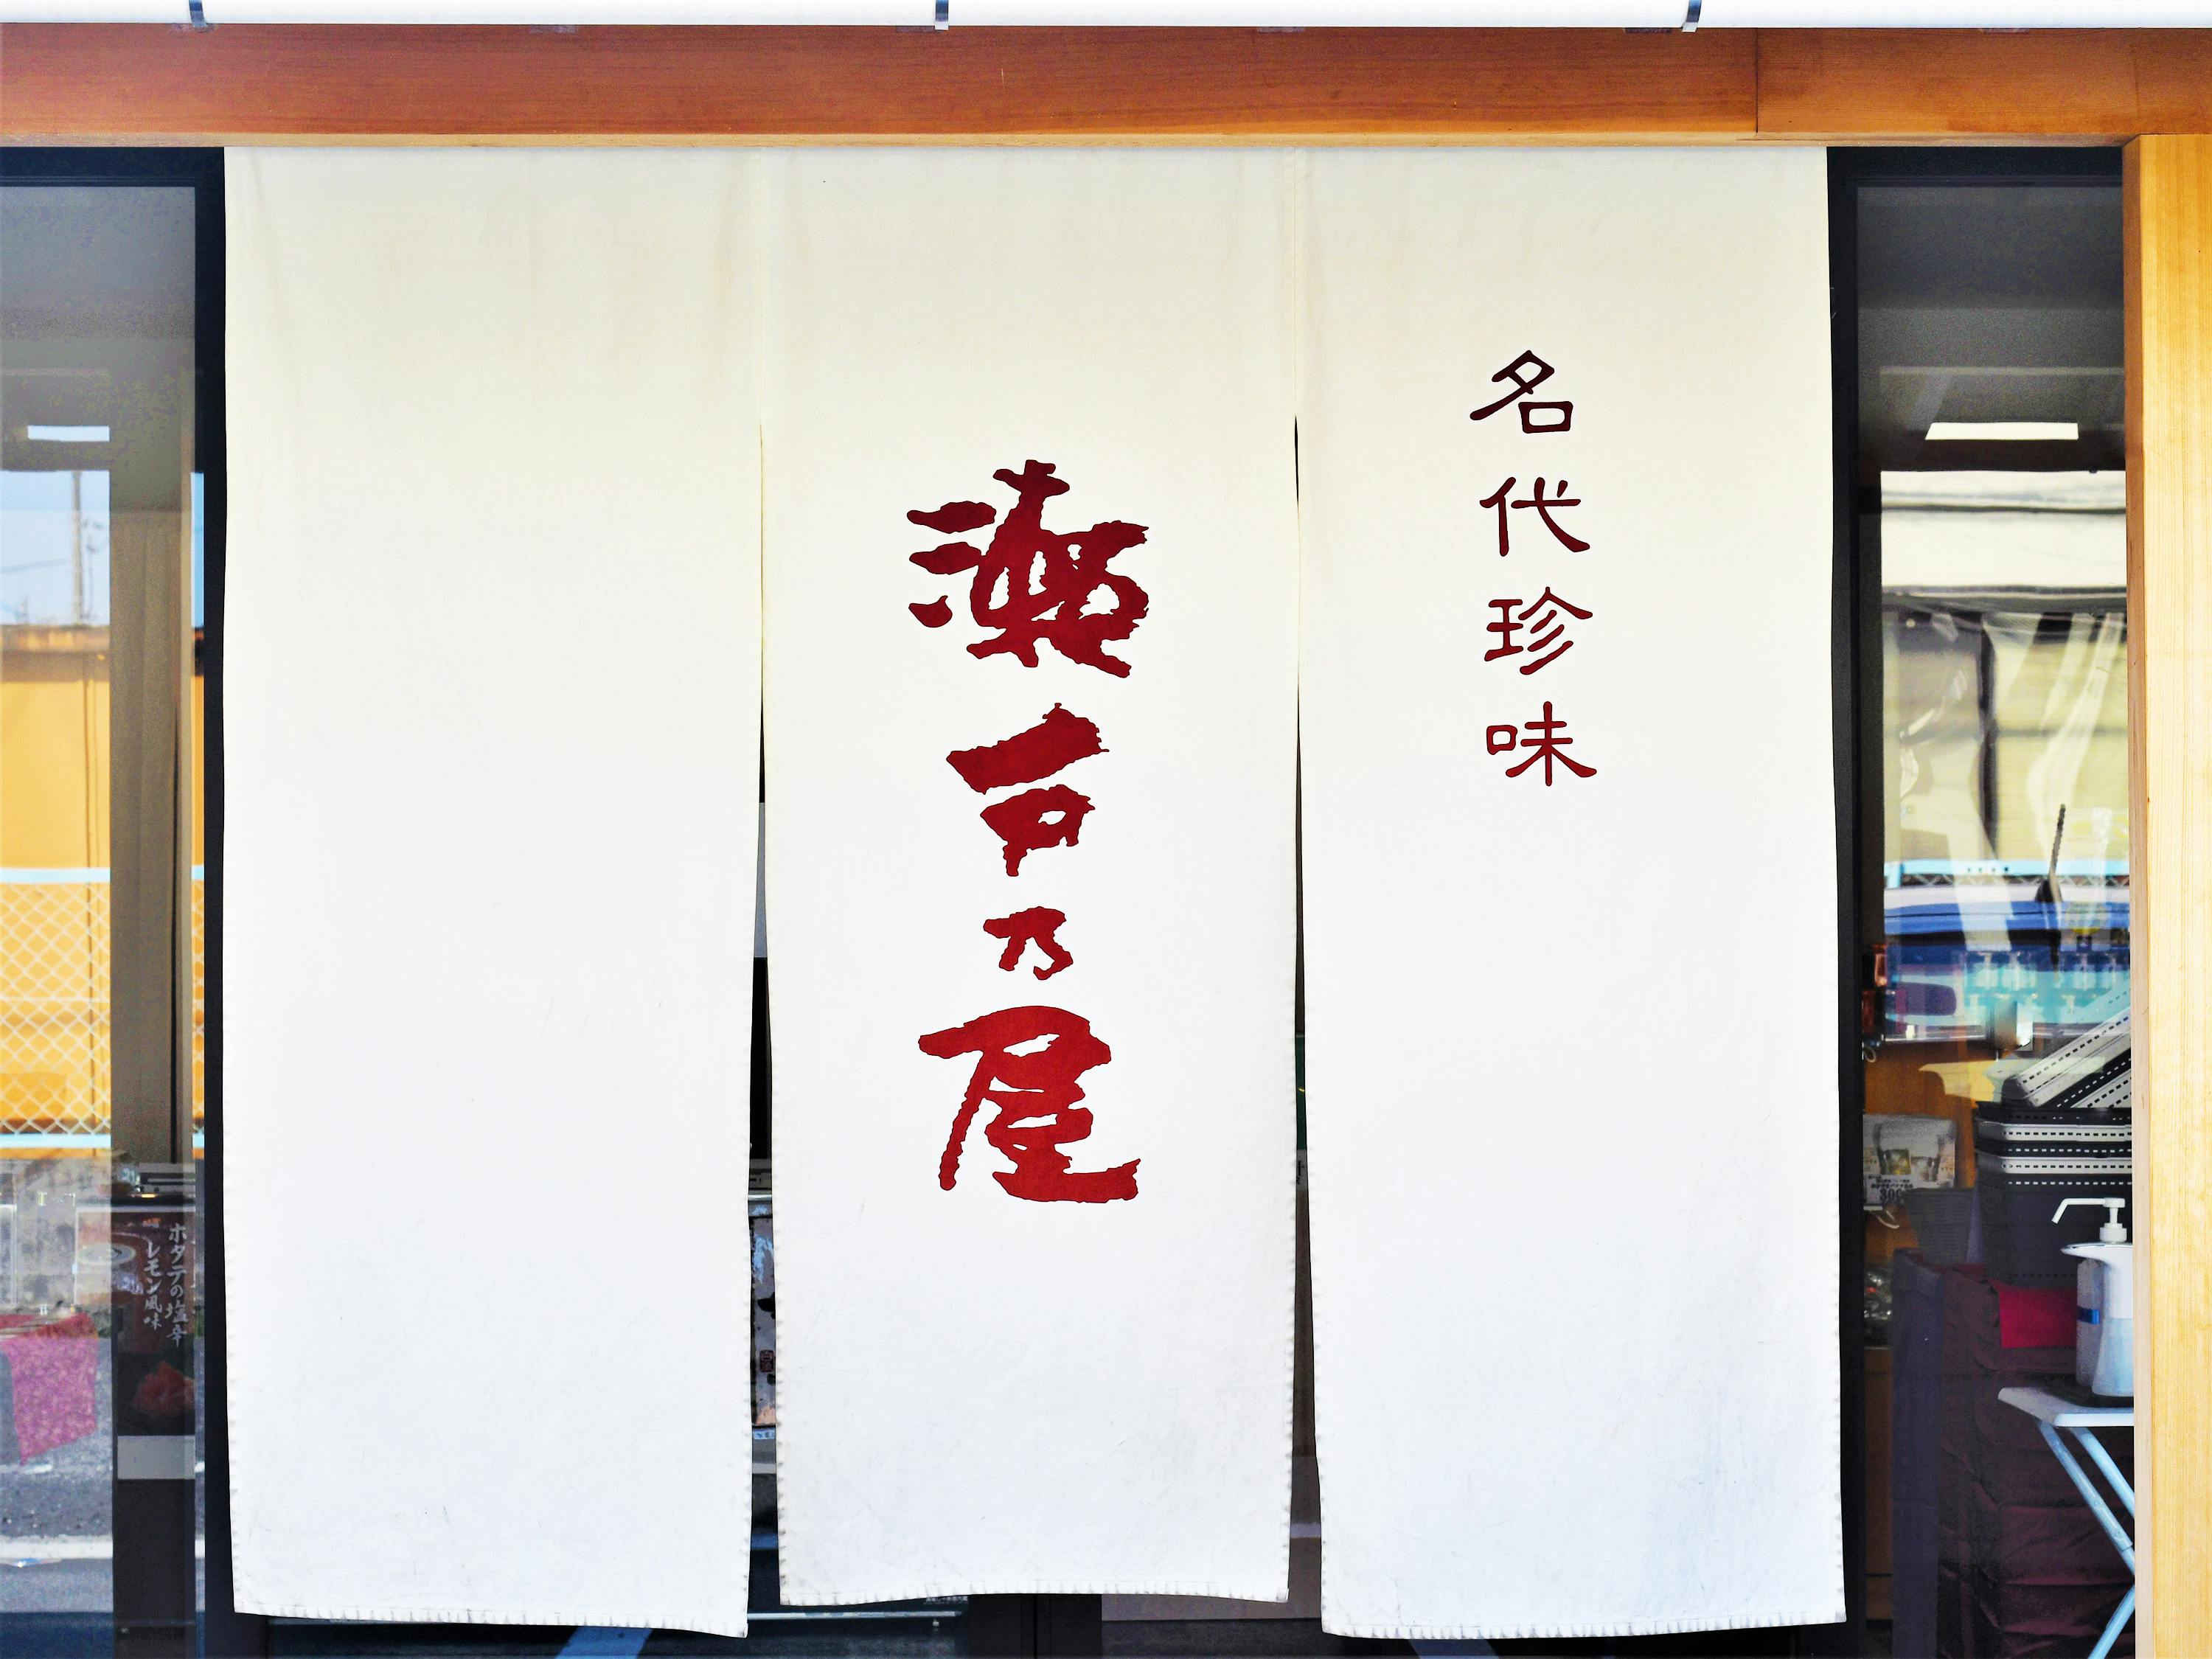 名代珍味
瀬戸乃屋
ホタテの塩辛
レモン風味
300